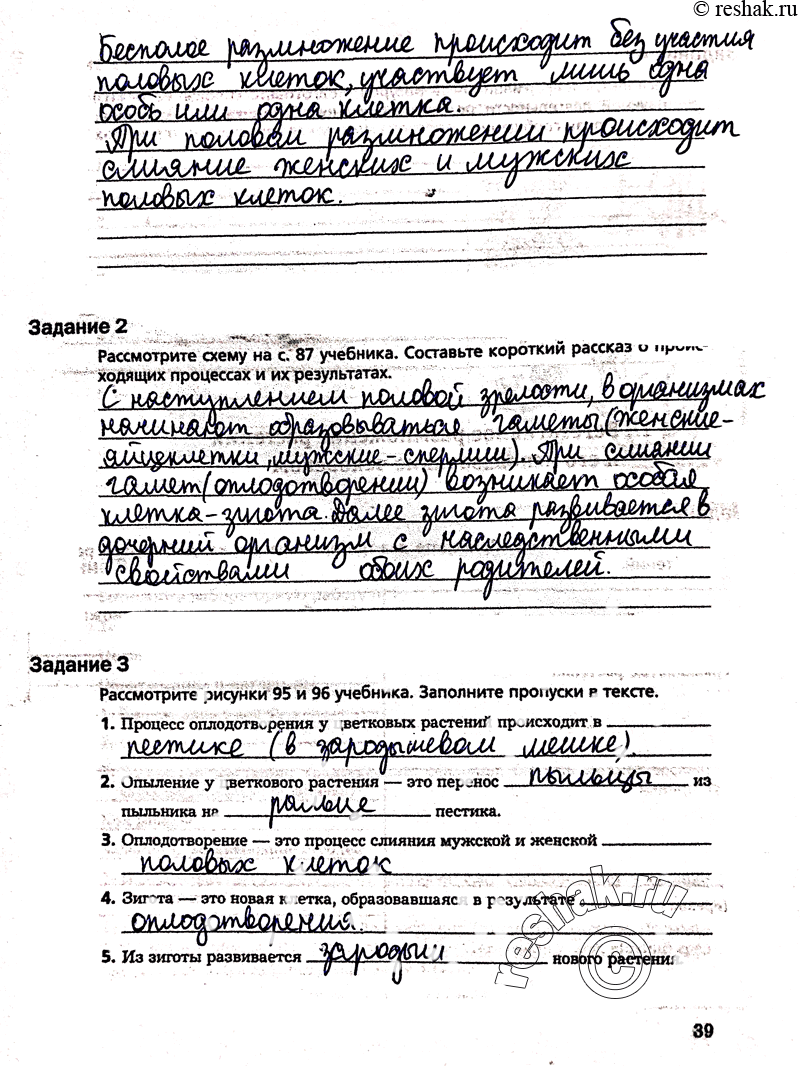 © reshak.ru
Бесполое размножение происходит без участия
половых клеток, участвует лишь одна
особь или одна клетка.
При половом размножении происходит
слияние женских и мужских
половых клеток.
Задание 2
Рассмотрите схему на с. 87 учебника. Составьте короткий рассказ о проис-
ходящих процессах и их результатах.
С наступлением половой зрелости, в организмах
начинают образовываться гаметы (женские-
яйцеклетки, мужские - спермии). При слиянии
гамет (оплодотворении) возникает особая
клетка - зигота. Далее зигота развивается в
дочерний организм с наследственными
свойствами обоих родителей.
Задание 3
Рассмотрите рисунки 95 и 96 учебника. Заполните пропуски в тексте.
1. Процесс оплодотворения у цветковых растений происходит в
пестике (в зародышевом мешке)
2. Опыление у цветкового растения — это перенос пыльцы из
пыльника на рыльце пестика.
3. Оплодотворение — это процесс слияния мужской и женской
половых клеток
4. Зигота — это новая клетка, образовавшаяся в результате
оплодотворения.
5. Из зиготы развивается зародыш нового растения
reshak.ru
©
39